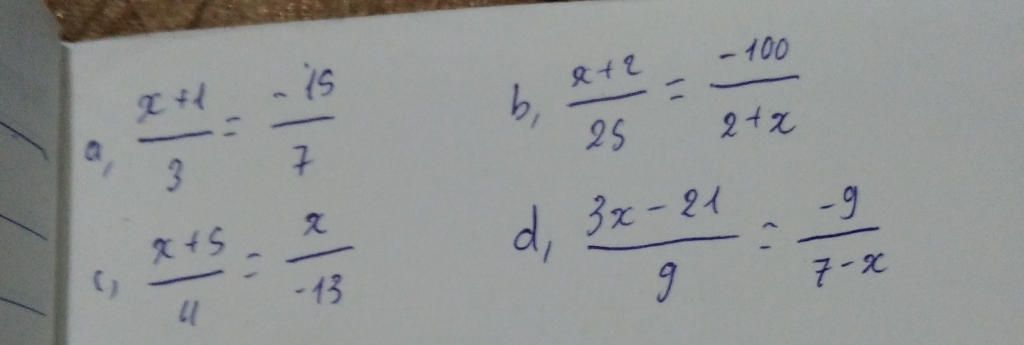 a, (x+1)/3 = (-15)/7
b, (x+2)/25 = (-100)/(2+x)
c, (x+5)/4 = x/(-13)
d, (3x-21)/9 = (-9)/(7-x)